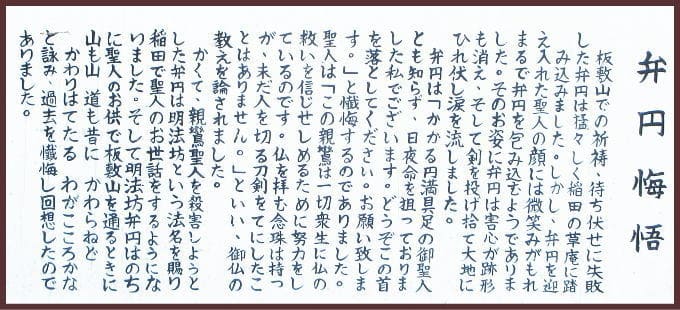 弁円悔悟
板敷山での祈祷、待ち伏せに失敗
した弁円は猛々しく稲田の草庵に踏
み込みました。しかし、弁円を迎
え入れた聖人の顔には微笑みがもれ
まるで弁円を包み込むようでありま
した。そのお姿に弁円は害心が跡形
も消え、そして剣を投げ捨て大地に
ひれ伏し涙を流しました。
弁円は「かかる円満具足の御聖人
とも知らず、日夜命を狙っておりま
した私でございます。どうぞこの首
を落としてください。お願い致しま
す。」と懺悔するのでありました。
聖人は「この親鸞は一切衆生に仏の
救いを信じせしめるために努力をし
ているのです。仏を拝む念珠は持つ
が、未だ人を切る刀剣をてにしたこ
とはありません。」といい、御仏の
教えを諭されました。
かくて、親鸞聖人を殺害しようと
した弁円は明法坊という法名を賜り
稲田で聖人のお世話をするようにな
いました。そして明法坊弁円はのち
に聖人のお供で板敷山を通るときに
山も山　道も昔に　かわらねど
かわりはてたる　わがこころかな
と詠み、過去を懺悔し回想したので
ありました。